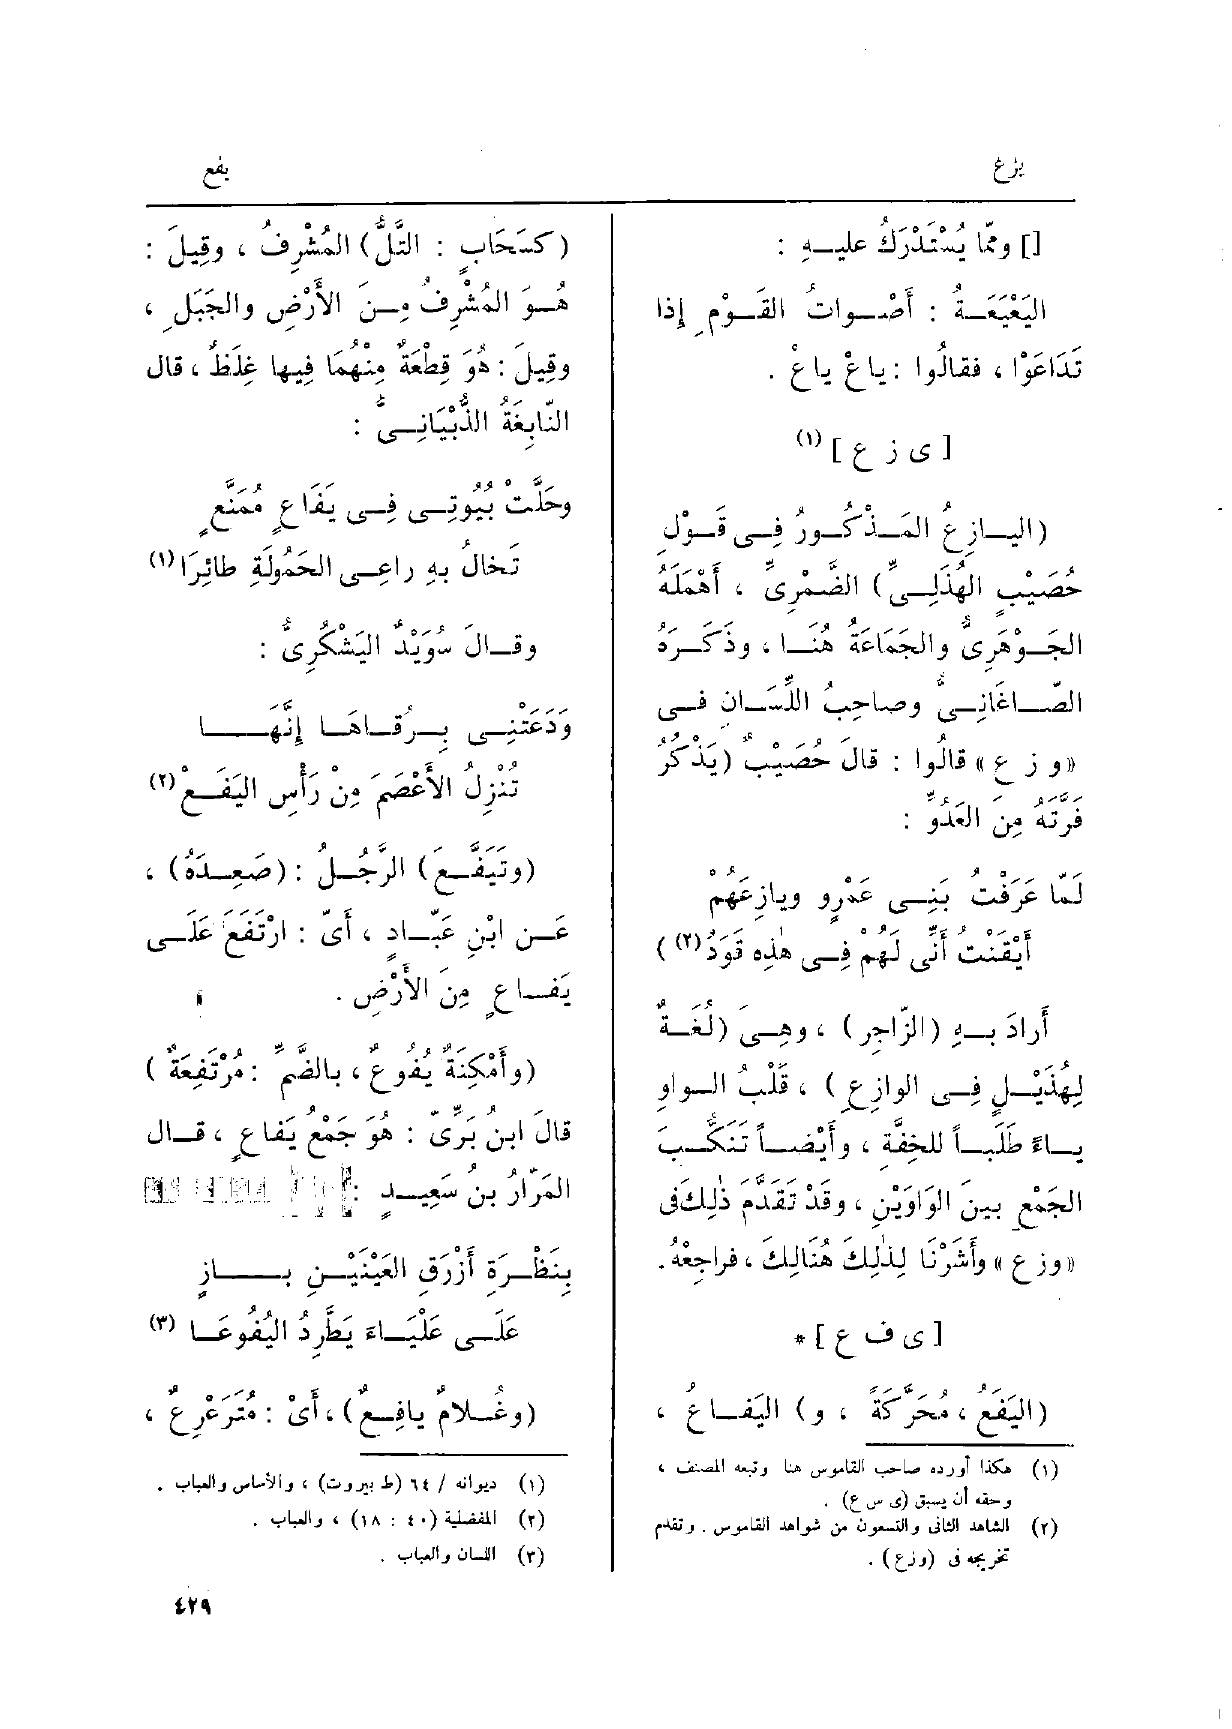 يزع
يفع
[] وممّا يُسْتَدْرَكُ عليــهِ :
اليَعْيَعَــةُ : أَصْــواتُ القَــوْمِ إِذا
تَدَاعَوْا ، فقالُوا : ياعْ ياعْ .
[ ى ز ع ] (١)
(اليــازِعُ المَــذْكُــورُ فِــى قَــوْلِ
حُصَيْبٍ الهُذَلِــىِّ) الضَّمْرِىِّ ، أَهْمَلَهُ
الجَــوْهَرِىُّ والجَمَاعَةُ هُنَــا ، وذَكَــرَهُ
الصّــاغَانِــىُّ وصاحِبُ اللِّسَــانِ فــى
«و ز ع» قالُوا : قالَ حُصَيْبٌ (يَذْكُرُ
فَرَّتَهُ مِنَ العَدُوِّ :
لَمّا عَرَفْتُ بَنِــى عَمْرٍو ويازِعَهُمْ
أَيْقَنْتُ أَنِّى لَهُمْ فِــى هٰذِه قَوَدُ(٢) )
أَرادَ بــهِ (الزّاجِر) ، وهِــىَ (لُغَــةٌ
لِهُذَيْــلٍ فِــى الوازِعِ ) ، قَلْبُ الــواوِ
يــاءً طَلَبــاً للخِفَّة ، وأَيْضــاً تَنَكُّــبَ
الجَمْعِ بينَ الوَاوَيْنِ ، وقَدْ تَقَدَّمَ ذٰلِكَ فى
«وزع» وأَشَرْنَا لِذٰلِكَ هُنَالِكَ ، فراجِعْهُ.
[ ى ف ع ] *
(اليَفَعُ ، مُحَرَّكَةً ، و) اليَفَــاعُ ،
(١) هكذا أورده صاحب القاموس هنا وتبعه المصنف ،
وحقه أن يسبق (ى س ع) .
(٢) الشاهد الثانى والتسعون من شواهد القاموس . وتقدم
تخريجه فى (وزع) .
(كسَحَابٍ : التَّلُّ) المُشْرِفُ ، وقِيلَ :
هُــوَ المُشْرِفُ مِــنَ الأَرْضِ والجَبَلِ ،
وقِيلَ : هُوَ قِطْعَةٌ مِنْهُمَا فِيها غِلَظٌ ، قال
النّابِغَةُ الذُّبْيَانِــىُّ :
وحَلَّتْ بُيُوتِــى فِــى يَفَاعٍ مُمَنَّعٍ
تَخالُ بهِ راعِــى الحَمُولَةِ طائِرَا (١)
وقــالَ سُوَيْدٌ اليَشْكُرِىُّ :
وَدَعَتْنِــى بِــرُقــاهَــا إِنَّهَــــا
تُنْزِلُ الأَعْصَمَ مِنْ رَأْسِ اليَفَــعْ (٢)
(وتَيَفَّــعَ) الرَّجُــلُ : (صَعِــدَهُ) ،
عَــن ابْنِ عَبّــادٍ ، أَىْ : ارْتَفَعَ عَلَــى
يَفَــاعٍ مِنَ الأَرْضِ .
(وأَمْكِنَةٌ يُفُوعٌ ، بالضَّمِّ : مُرْتَفِعَةٌ )
قالَ ابنُ بَرِّىّ : هُوَ جَمْعُ يَفَاعٍ ، قــال
المَرّارُ بنُ سَعِيــدٍ :
بِنَظْــرَةِ أَزْرَقِ العَيْنَيْــنِ بــــازٍ
عَلَــى عَلْيَــاءَ يَطَّرِدُ اليُفُوعَــا (٣)
(وغُــلامٌ يافِــعٌ) ، أَىْ : مُتَرَعْرِعٌ ،
(١) ديوانه / ٦٤ (ط بيروت) ، والأساس والعباب .
(٢) المفضلية (٤٠ : ١٨) ، والعباب .
(٣) اللسان والعباب .
٤٢٩